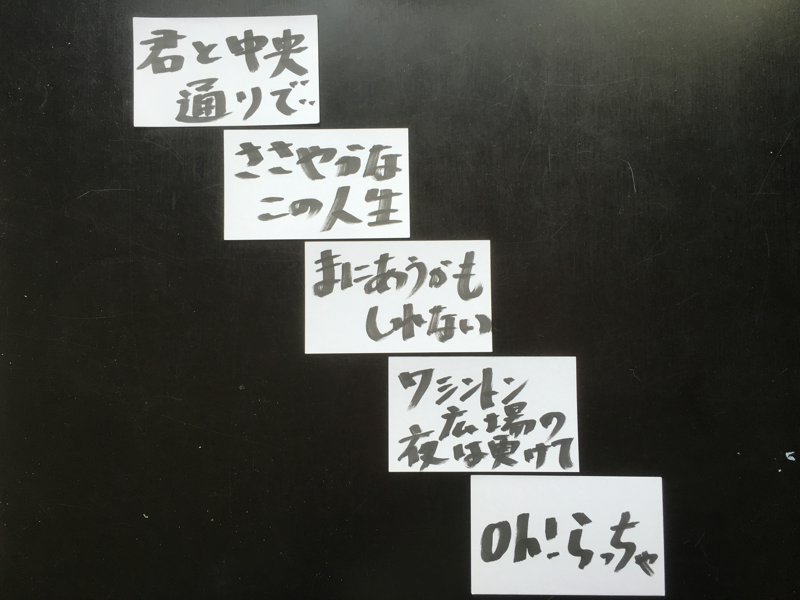 君と中央
通りで‥
ささやうな
この人生
まにあうかも
しれない
ワシントン
広場の
夜は更けて
Oh!らっちゃ